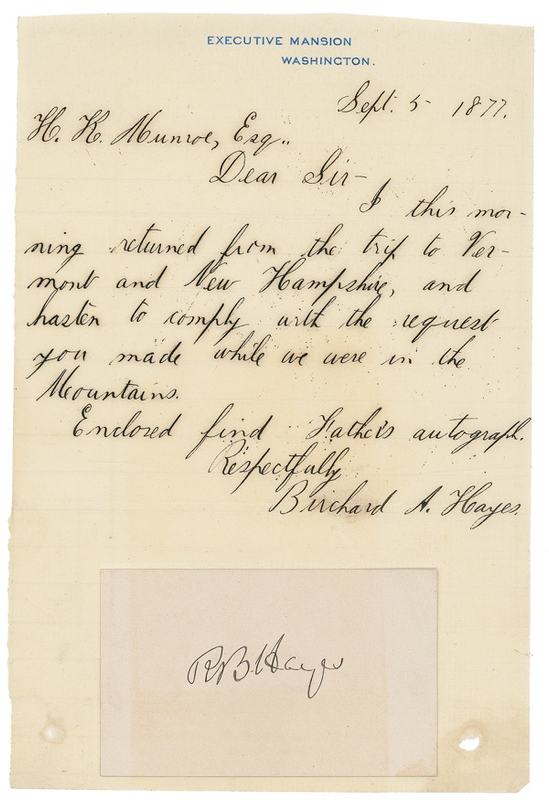 EXECUTIVE MANSION
WASHINGTON.
Sept. 5- 1877.
H. K. Munroe, Esq..
Dear Sir-
I this mor-
ning returned from the trip to Ver-
mont and New Hampshire, and
hasten to comply with the request
you made while we were in the
Mountains.
Enclosed find Father's autograph.
Respectfully
Birchard A. Hayes.
R.B.Hayes